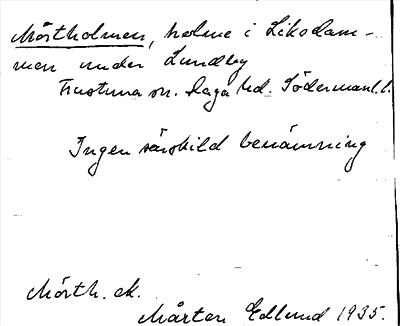 Mörtholmen, holme i Likodam-
men under Lundby
Frustuna sn. Daga hd. Södermanl. l.
Ingen särskild benämning
Mörth. ek.
Mårten Edlund 1935.